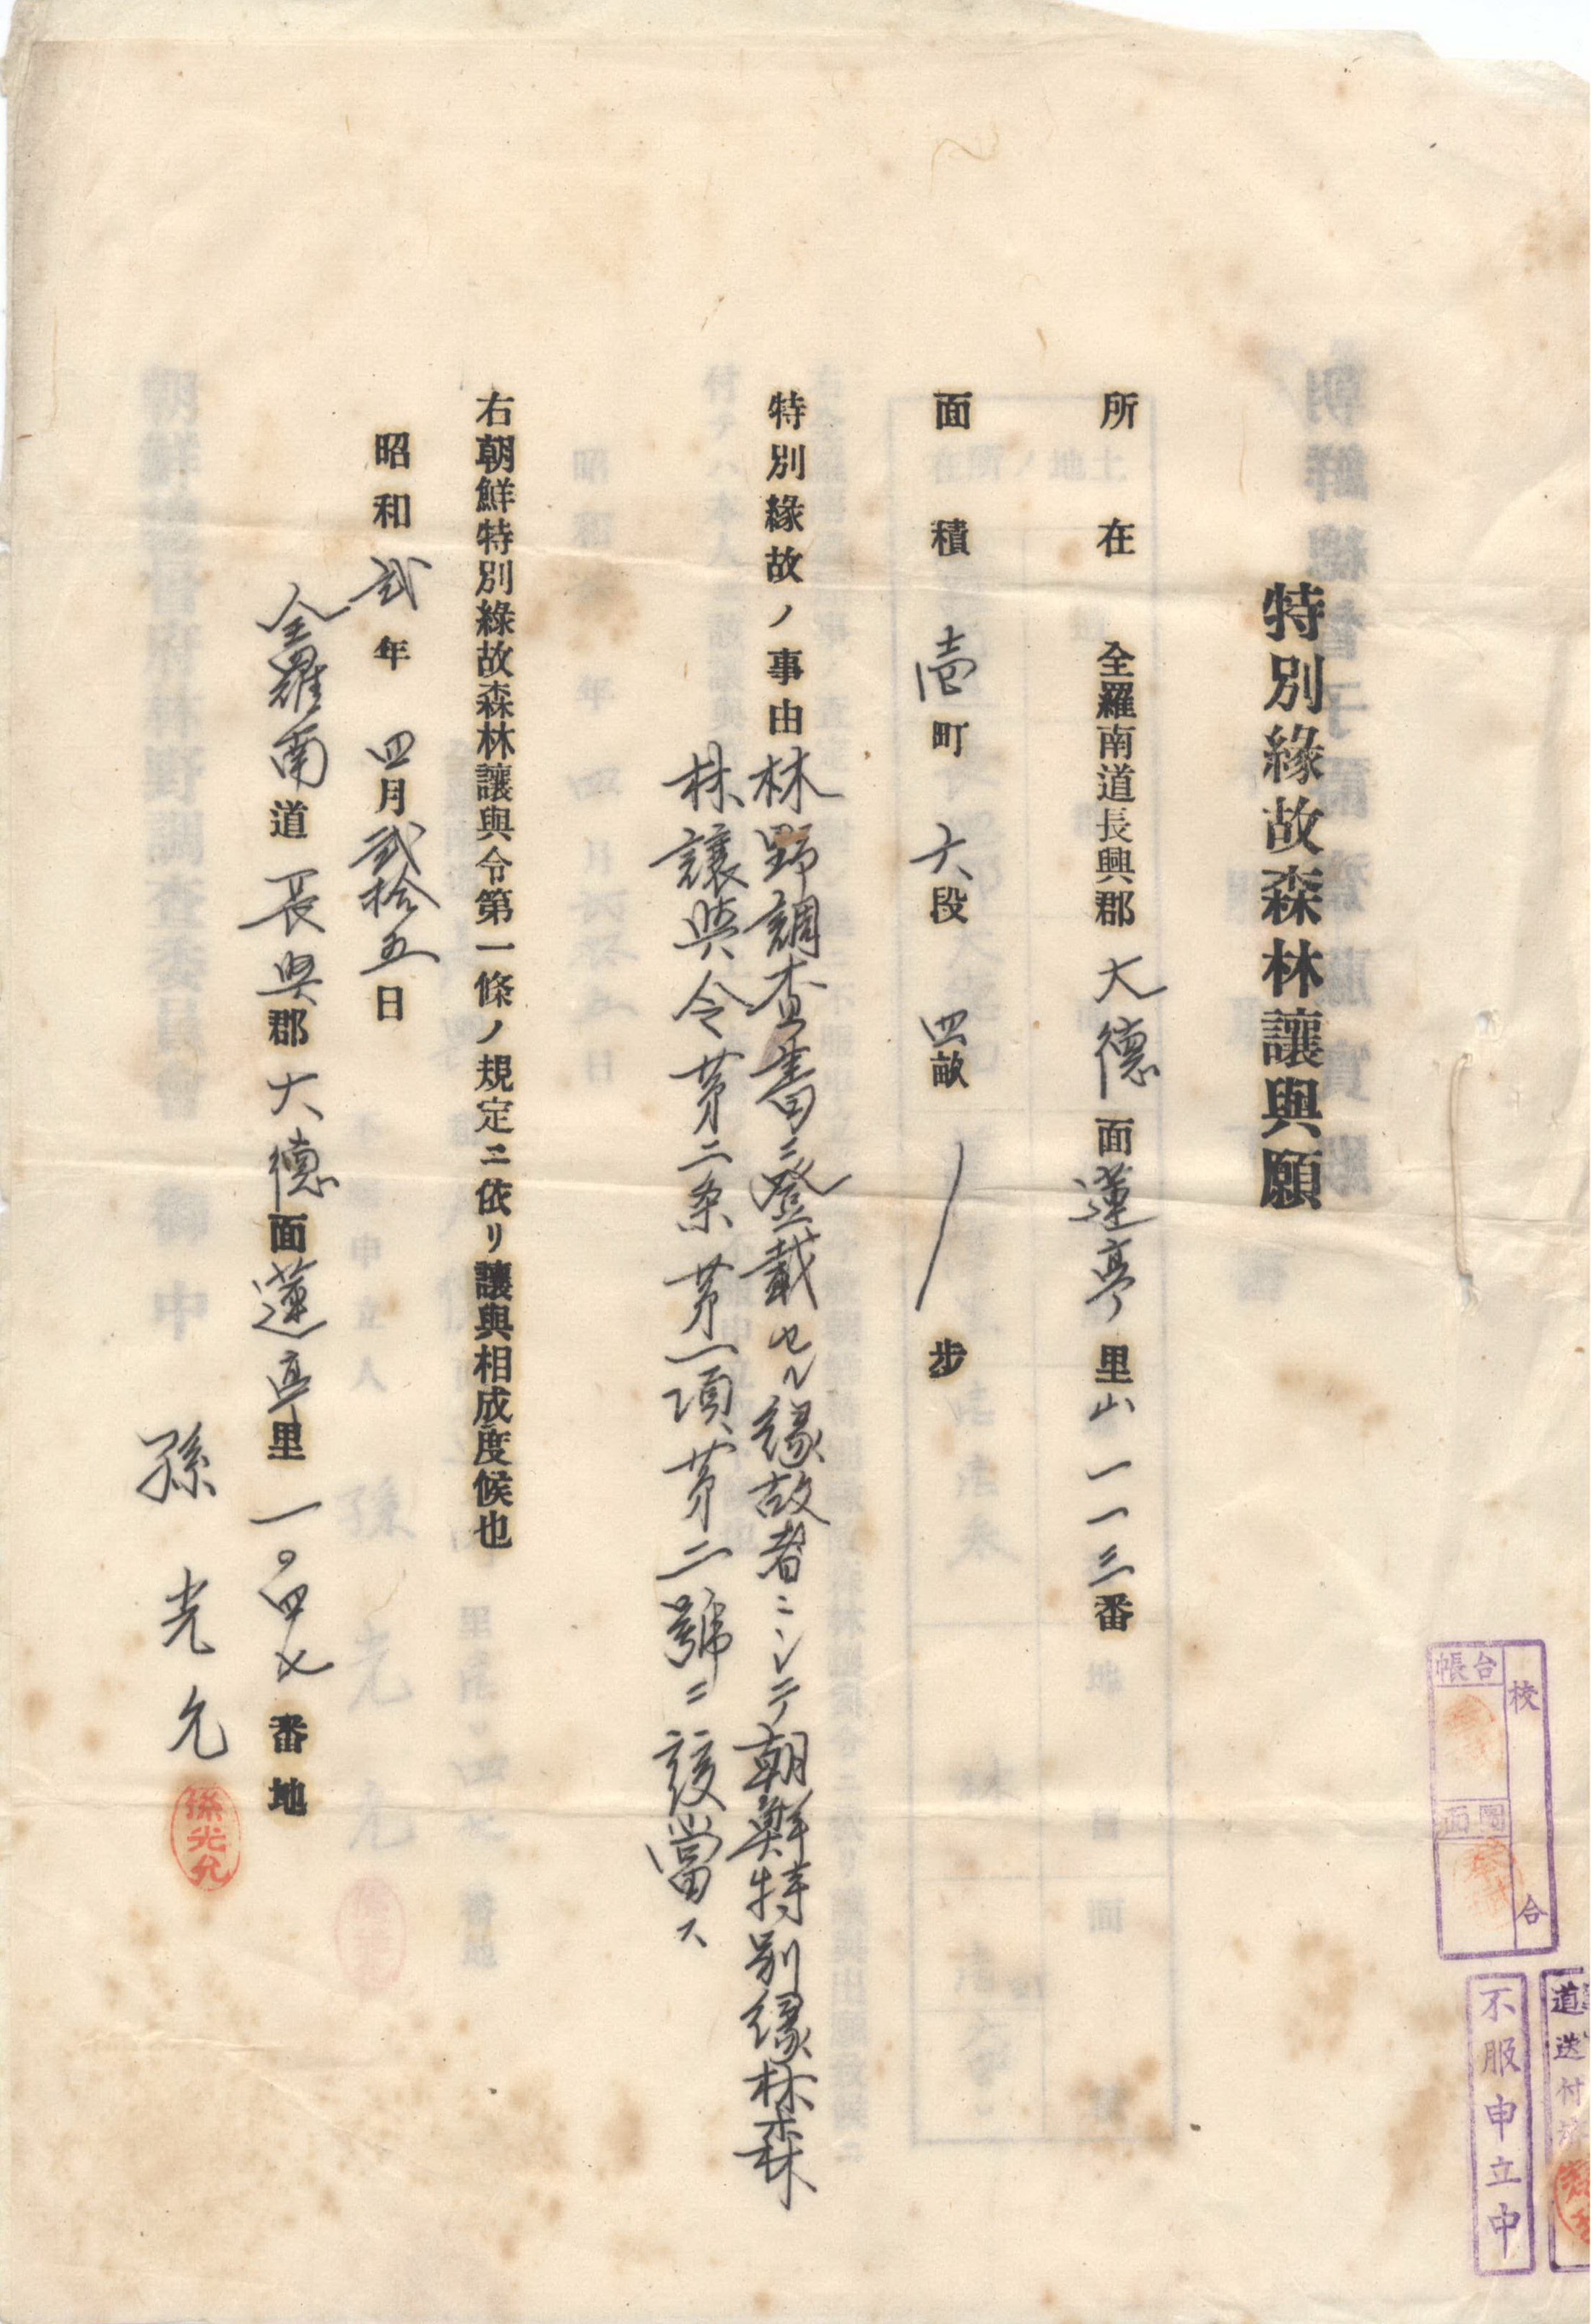 特別緣故森林讓與願
所在 全羅南道長興郡大德面蓮亭里山一一三番
面積 壱町 六段 四畝 步
特別緣故ノ事由 林野調査書ニ登載セル縁故者ニシテ朝鮮特別縁林森
林譲與令第二条第一項第二號ニ該當ス
右朝鮮特別緣故森林讓與令第一條ノ規定ニ依リ讓與相成度候也
昭和貳年四月貳拾五日
全羅南道長興郡大德面蓮亭里一〇四七番地
孫光允
孫光允
校合
台帳
圖面
道送付
不服申立中